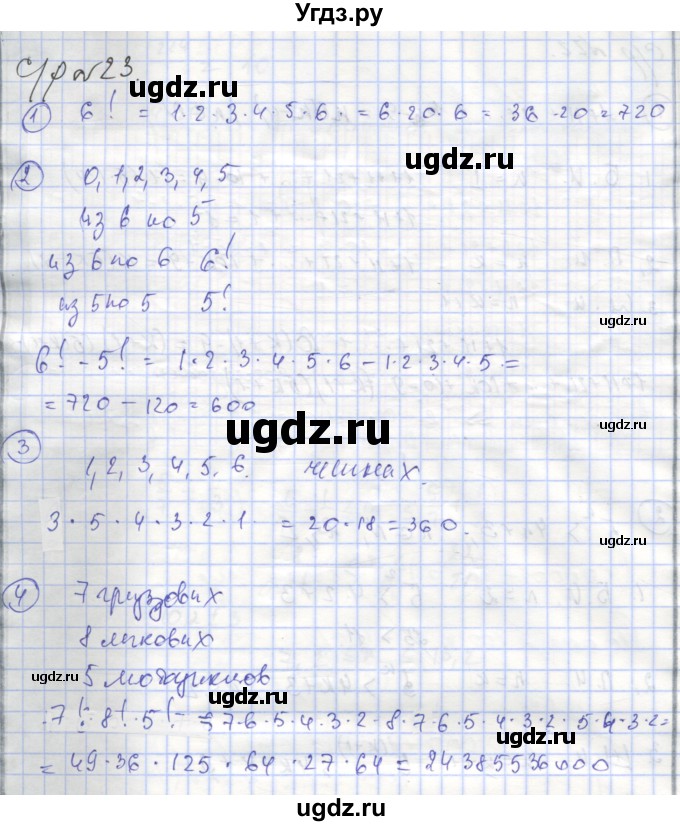 Угдз.ру
С/р №23.
ugdz.ru
① 6! = 1·2·3·4·5·6· = 6·20·6 = 36·20 = 720
ugdz.ru
ugdz.ru
② 0, 1, 2, 3, 4, 5
из 6 по 5
из 6 по 6 6!
ugdz.ru
из 5 по 5 5!
6! - 5! = 1·2·3·4·5·6 - 1·2·3·4·5 =
= 720 - 120 = 600
ugdz.ru
ugdz.ru
③
1, 2, 3, 4, 5, 6.
3·5·4·3·2·1· = 20·18 = 360.
ugdz.ru
④ 7 грузових
8 легкових
ugdz.ru
5 мотоциклов
ugdz.ru
7!·8!·5! = 7·6·5·4·3·2·8·7·6·5·4·3·2·5·4·3·2=
ugdz.ru
= 49·36·125·64·27·64 = 24385536000
ugdz.ru